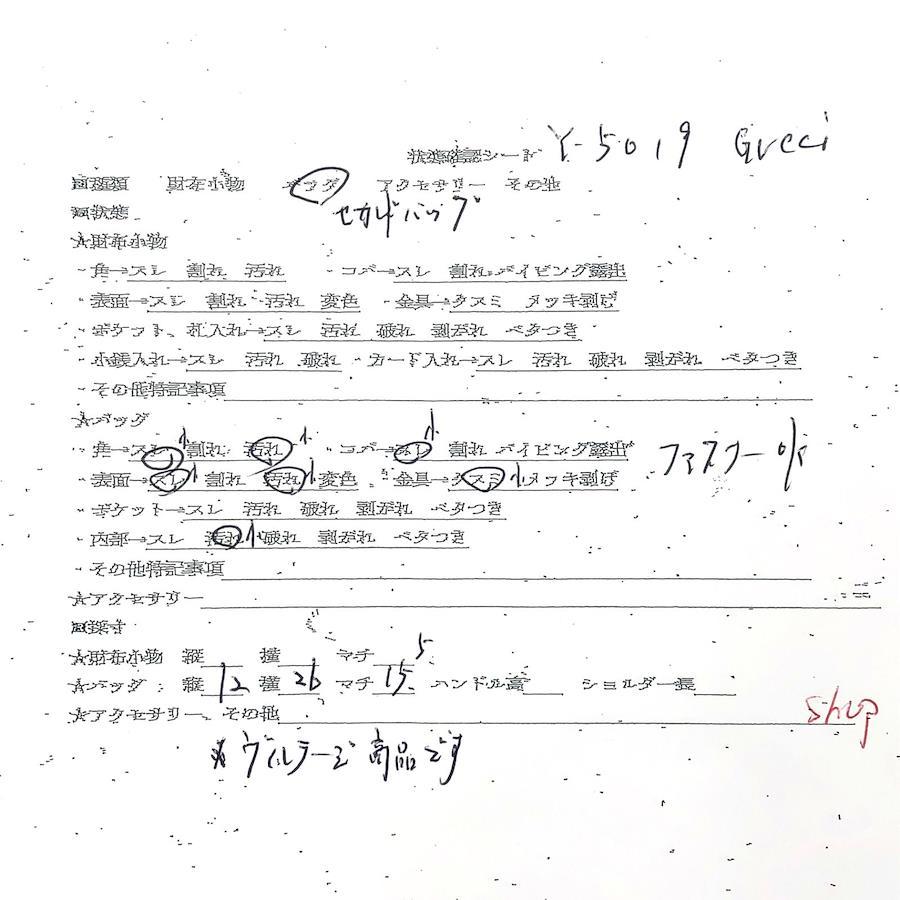 状態確認シード Y-5019 Gucci
■種類 財布小物 バッグ アクセサリー その他
セカンドバッグ
■状態
★財布小物
・角→スレ 割れ 汚れ ・コバ→スレ 割れ パイピング露出
・表面→スレ 割れ 汚れ 変色 ・金具→クスミ メッキ剥げ
・ポケット、札入れ→スレ 汚れ 破れ 剥がれ ベタつき
・小銭入れ→スレ 汚れ 破れ ・カード入れ→スレ 汚れ 破れ 剥がれ ベタつき
・その他特記事項
★バッグ
・角→スレ小 割れ 汚れ小 ・コバ→スレ小 割れ パイピング露出
・表面→スレ小 割れ 汚れ小 変色 ・金具→クスミ小 メッキ剥げ ファスナーok
・ポケット→スレ 汚れ 破れ 剥がれ ベタつき
・内部→スレ 汚れ小 破れ 剥がれ ベタつき
・その他特記事項
★アクセサリー
■採寸
★財布小物 縦 横 マチ 5
★バッグ：縦 12 横 26 マチ 15 ハンドル高 ショルダー長
★アクセサリー、その他
shop
※ヴィンテージ商品です